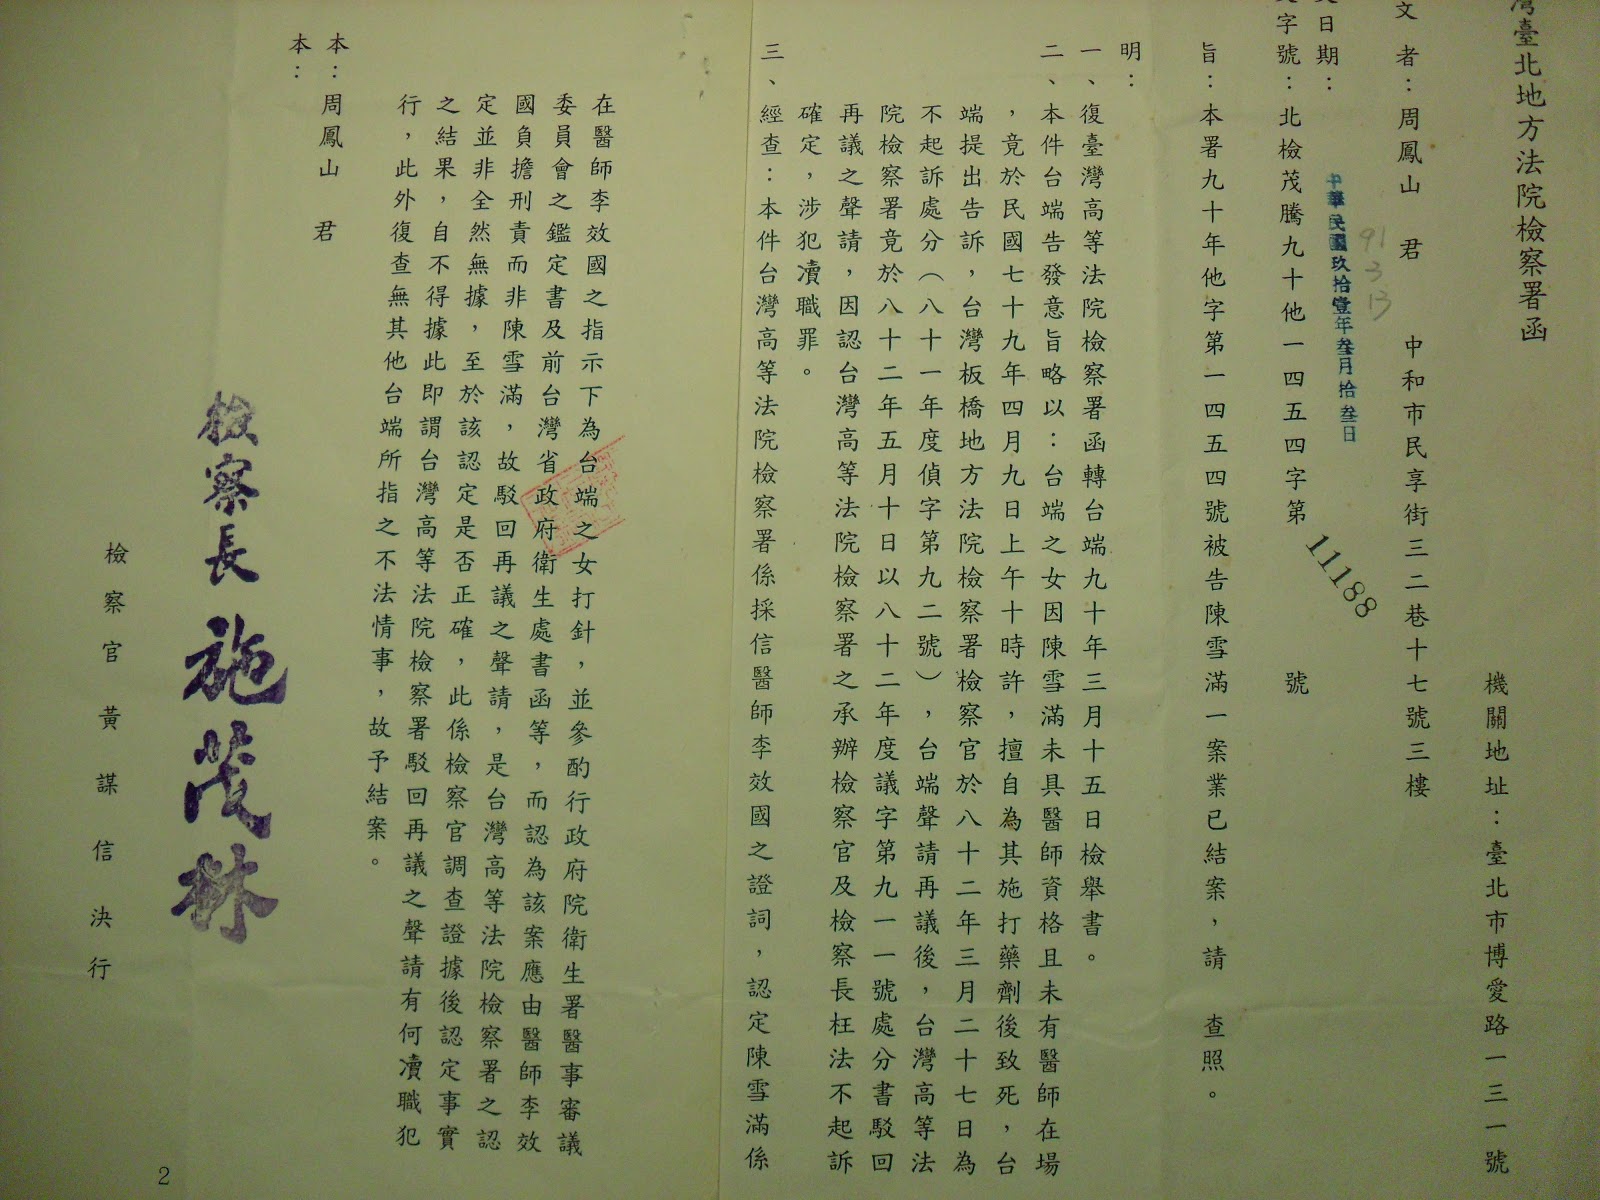 灣臺北地方法院檢察署函
機關地址：臺北市博愛路一三一號
文者：周鳳山　君　　中和市民享街三二巷十七號三樓
日期：
中華民國玖拾壹年叁月拾叁日
91 3 13
字號：北檢茂騰九十他一四五四字第11188號
旨：本署九十年他字第一四五四號被告陳雪滿一案業已結案，請　查照。
明：
一、復臺灣高等法院檢察署函轉台端九十年三月十五日檢舉書。
二、本件台端告發意旨略以：台端之女因陳雪滿未具醫師資格且未有醫師在場
，竟於民國七十九年四月九日上午十時許，擅自為其施打藥劑後致死，台
端提出告訴，台灣板橋地方法院檢察署檢察官於八十二年三月二十七日為
不起訴處分（八十一年度偵字第九二號），台端聲請再議後，台灣高等法
院檢察署竟於八十二年五月十日以八十二年度議字第九一一號處分書駁回
再議之聲請，因認台灣高等法院檢察署之承辦檢察官及檢察長枉法不起訴
確定，涉犯瀆職罪。
三、經查：本件台灣高等法院檢察署係採信醫師李效國之證詞，認定陳雪滿係
在醫師李效國之指示下為台端之女打針，並參酌行政府院衛生署醫事審議
委員會之鑑定書及前台灣省政府衛生處書函等，而認為該案應由醫師李效
國負擔刑責而非陳雪滿，故駁回再議之聲請，是台灣高等法院檢察署之認
定並非全然無據，至於該認定是否正確，此係檢察官調查證據後認定事實
之結果，自不得據此即謂台灣高等法院檢察署駁回再議之聲請有何瀆職犯
行，此外復查無其他台端所指之不法情事，故予結案。
本：周鳳山　君
本：
檢察長 施茂林
檢察官黃謀信決行
2